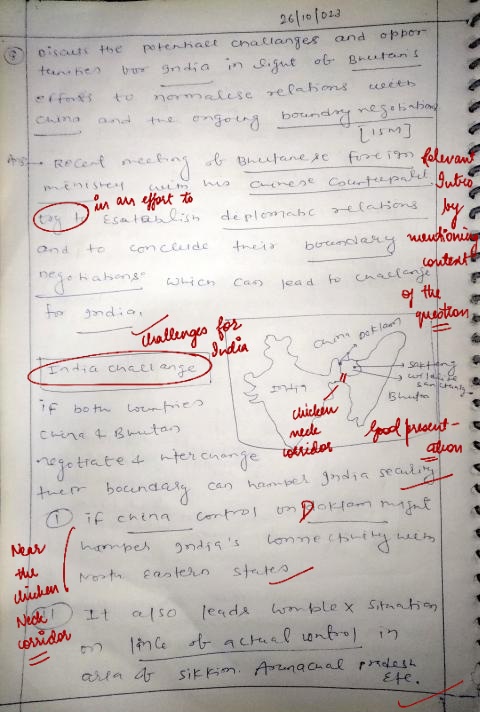 26/10/023
Discuss the potentiall challanges and oppor-
tunities for India in light of Bhutan's
efforts to normalise relations with
China and the ongoing boundry negotiation
[15M]
Ans → Recent meeting of Bhutanese foreign
ministry with his Chinese Counterpart.
in an effort to
try to Esatablish deplomatic relations
and to conclude their boundary
negotiations which can lead to challange
for India.
Relevant
Intro
by
mentioning
content
of the
question
challenges for
India
India challange
China Doklam
India
Sakteng
wildlife
sanctuary
Bhutan
chicken
neck
corridor
Good present-
ation
if both countries
China & Bhutan
negotiate & interchange
their boundary can hamper India security
① if China control on Doklam might
hamper India's connectivity with
North Eastern States
Near
the
chicken
Neck
corridor
ii) It also leads complex situation
on line of actual control in
area of sikkim. Arunachal pradesh
Etc.